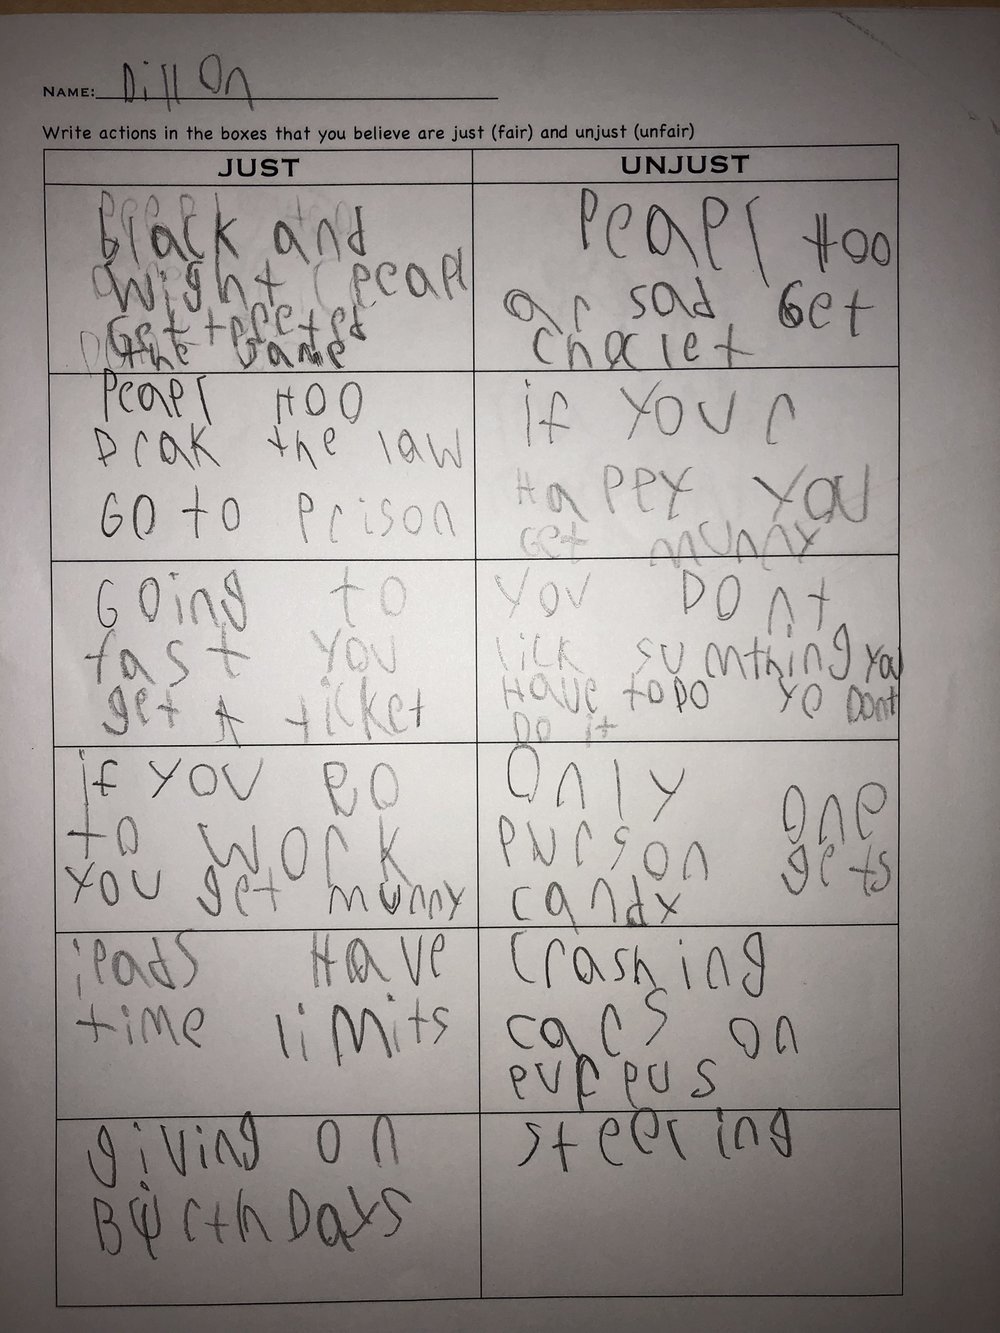 NAME: Dillon
Write actions in the boxes that you believe are just (fair) and unjust (unfair)
JUST
UNJUST
Black and
wight peapl
Get treeted
the Same
Peapl Hoo
ar sad Get
choclet
Peapl Hoo
Brak the law
Go to Prison
if your
Happey you
Get munny
Going to
fast you
get A ticket
You Dont
lick sumthing you
Have to Do yo Dont
Do it
if you Go
to work
you get munny
Only one
purson gets
candy
ipads Have
time limits
Crashing
cars on
purpus
giving on
BirthDays
steeling